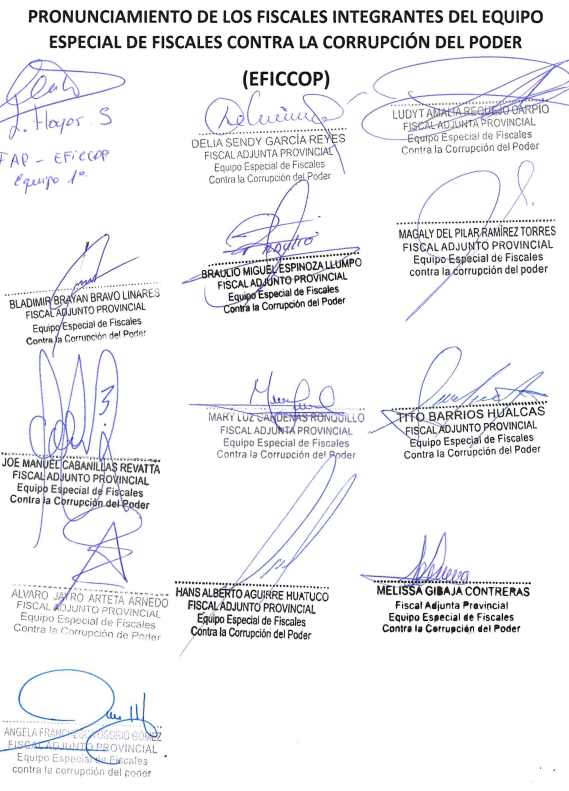 PRONUNCIAMIENTO DE LOS FISCALES INTEGRANTES DEL EQUIPO
ESPECIAL DE FISCALES CONTRA LA CORRUPCIÓN DEL PODER
(EFICCOP)
L. Hoyos S
FAP - EFICCOP
Equipo 1º
DELIA SENDY GARCÍA REYES
FISCAL ADJUNTA PROVINCIAL
Equipo Especial de Fiscales
Contra la Corrupción del Poder
LUDYT AMALIA REQUEJO CARPIO
FISCAL ADJUNTA PROVINCIAL
Equipo Especial de Fiscales
Contra la Corrupción del Poder
BLADIMIR BRAYAN BRAVO LINARES
FISCAL ADJUNTO PROVINCIAL
Equipo Especial de Fiscales
Contra la Corrupción del Poder
BRAULIO MIGUEL ESPINOZA LLUMPO
FISCAL ADJUNTO PROVINCIAL
Equipo Especial de Fiscales
Contra la Corrupción del Poder
MAGALY DEL PILAR RAMÍREZ TORRES
FISCAL ADJUNTO PROVINCIAL
Equipo Especial de Fiscales
contra la corrupción del poder
JOE MANUEL CABANILLAS REVATTA
FISCAL ADJUNTO PROVINCIAL
Equipo Especial de Fiscales
Contra la Corrupción del Poder
MARY LUZ CARDENAS RONQUILLO
FISCAL ADJUNTA PROVINCIAL
Equipo Especial de Fiscales
Contra la Corrupción del Poder
TITO BARRIOS HUALCAS
FISCAL ADJUNTO PROVINCIAL
Equipo Especial de Fiscales
Contra la Corrupción del Poder
ALVARO JAYRO ARTETA ARNEDO
FISCAL ADJUNTO PROVINCIAL
Equipo Especial de Fiscales
Contra la Corrupción de Poder
HANS ALBERTO AGUIRRE HUATUCO
FISCAL ADJUNTO PROVINCIAL
Equipo Especial de Fiscales
Contra la Corrupción del Poder
MELISSA GIBAJA CONTRERAS
Fiscal Adjunta Provincial
Equipo Especial de Fiscales
Contra la Corrupción del Poder
ANGELA GOMEZ
FISCAL ADJUNTO PROVINCIAL
Equipo Especial de Fiscales
contra la corrupción del poder